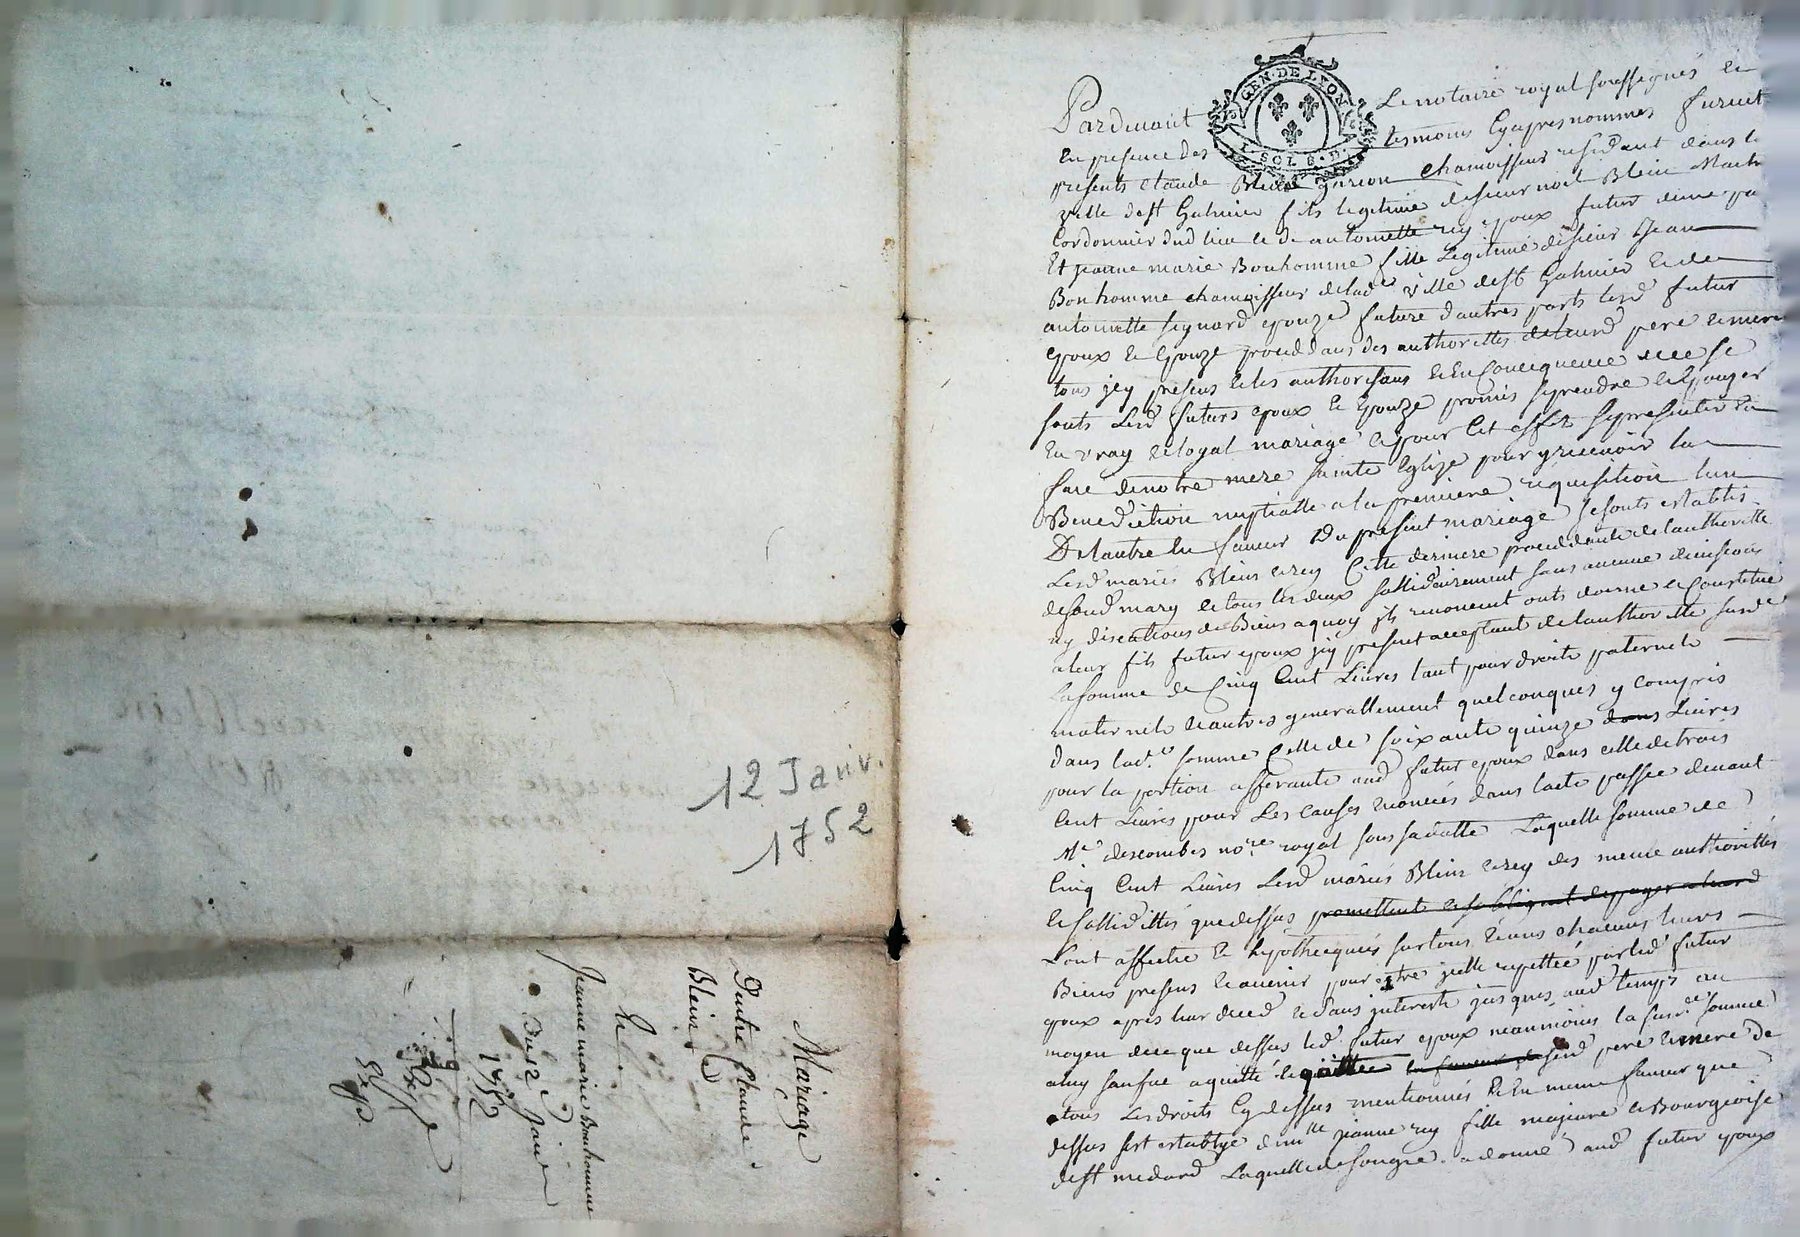 12 Janv.
1752
Mariage
D'entre Claude
Blein
Et
Jeanne marie Bonhomme
Du 12e Janv
1752
Exp.
GEN. DE LYON
I. SOL 8. D.
Pardevant Le notaire royal soussignés et
En presence des tesmoins Cyapres nommés furent
presents Claude Blein garcon chamoisseur residant dans la
ville de st Galmier fils legitime de sieur noel Blein Maitre
Cordonnier dud lieu et de antoinette rey epoux futur dune part
Et jeanne marie Bonhomme fille Legitime de sieur Jean
Bonhomme chamoisseur de lade ville de st Galmier et de
antoinette signard epouze future d'autres parts lesd futur
epoux et Epouze proceddans des authorittés de leurd pere et mere
tous jcy presens et les authorisans et En Consequence de ce se
sonts Lesd futurs epoux et Epouze promis se prendre et Epouzer
En vray et loyal mariage et pour Cet effet se presenter En
face de notre mere sainte Eglize pour y recevoir la
Benediction nuptialle a la premiere requisition lun
De lautre En faveur Du present mariage se sonts establis
Lesd mariés Blein et rey Cette derniere proceddante de lauthoritté
de sond mary et tous les deux sollidairement sans aucune division
ny discutions de Biens a quoy jls renoncent onts donné et Constitué
a leur fils futur epoux jcy present acceptant de lauthoritté susde
La somme de Cinq Cent Livres tant pour droits paternels
maternels et autres generallement quelconques y compris
dans lade somme Celle de soixante quinze Livres
pour la portion afferante aud futur epoux dans celle de trois
Cent Livres pour Les Causes enoncées dans lacte passée devant
Me descombes nore royal sous sa datte Laquelle somme de
Cinq Cent Livres Lesd mariés Blein et rey des meme authorittés
et sollidittés que dessus promettent et sobligent de payer a leurd
Sont affectée et hypothequées sur tous et uns chacuns leurs
Biens presens et avenir pour etre jcelle repettée par led futur
epoux apres leur deced et sans interests jusques aud temps au
moyen de ce que dessus led futur epoux neanmoins la susde somme
a luy sauve a quitté et quitte en faveur de sesd pere et mere de
tous Les droits Cy dessus mentionnés Et En meme faveur que
dessus sest establye demlle jeanne rey fille majeure et Bourgeoise
de st medard Laquelle de son gré a donné aud futur epoux